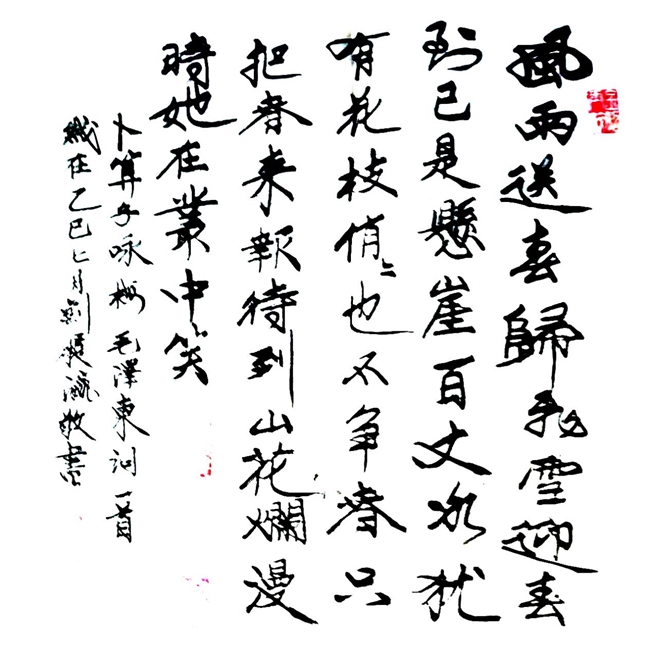 風雨送春歸飛雪迎春
到已是懸崖百丈冰猶
有花枝俏〻也不争春只
把春来報待到山花爛漫
時她在叢中笑
卜算子咏梅毛澤東詞一首
歲在乙巳月劉敬書